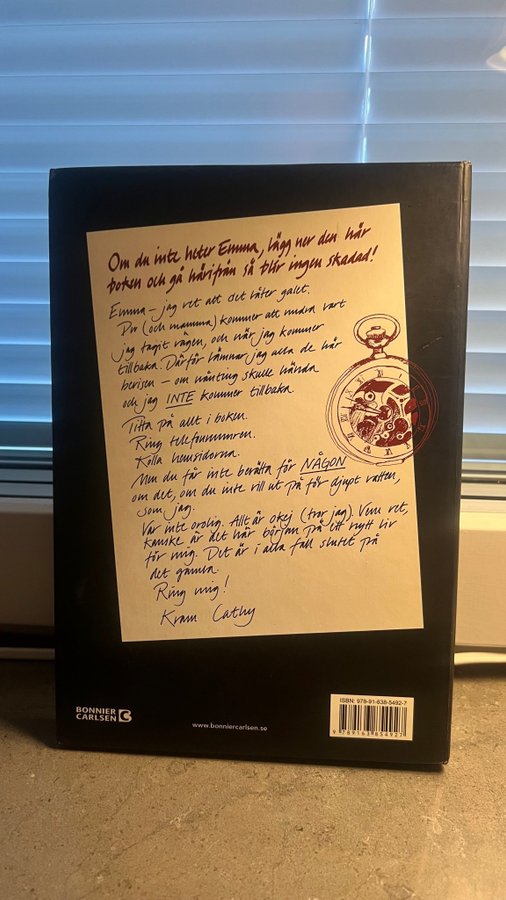 Om du inte heter Emma, lägg ner den här
boken och gå härifrån så blir ingen skadad!
Emma – jag vet att det låter galet.
Du (och mamma) kommer att undra vart
jag tagit vägen, och när jag kommer
tillbaka. Därför lämnar jag alla de här
bevisen – om nånting skulle hända
och jag INTE kommer tillbaka.
Titta på allt i boken.
Ring telefonnumren.
Kolla hemsidorna.
Men du får inte berätta för NÅGON
om det, om du inte vill ut på för djupt vatten,
som jag.
Var inte orolig. Allt är okej (tror jag). Vem vet,
kanske är det här början på ett nytt liv
för mig. Det är i alla fall slutet på
det gamla.
Ring mig!
Kram Cathy
BONNIER
CARLSEN
www.bonniercarlsen.se
ISBN: 978-91-638-5492-7
9 789163 854927